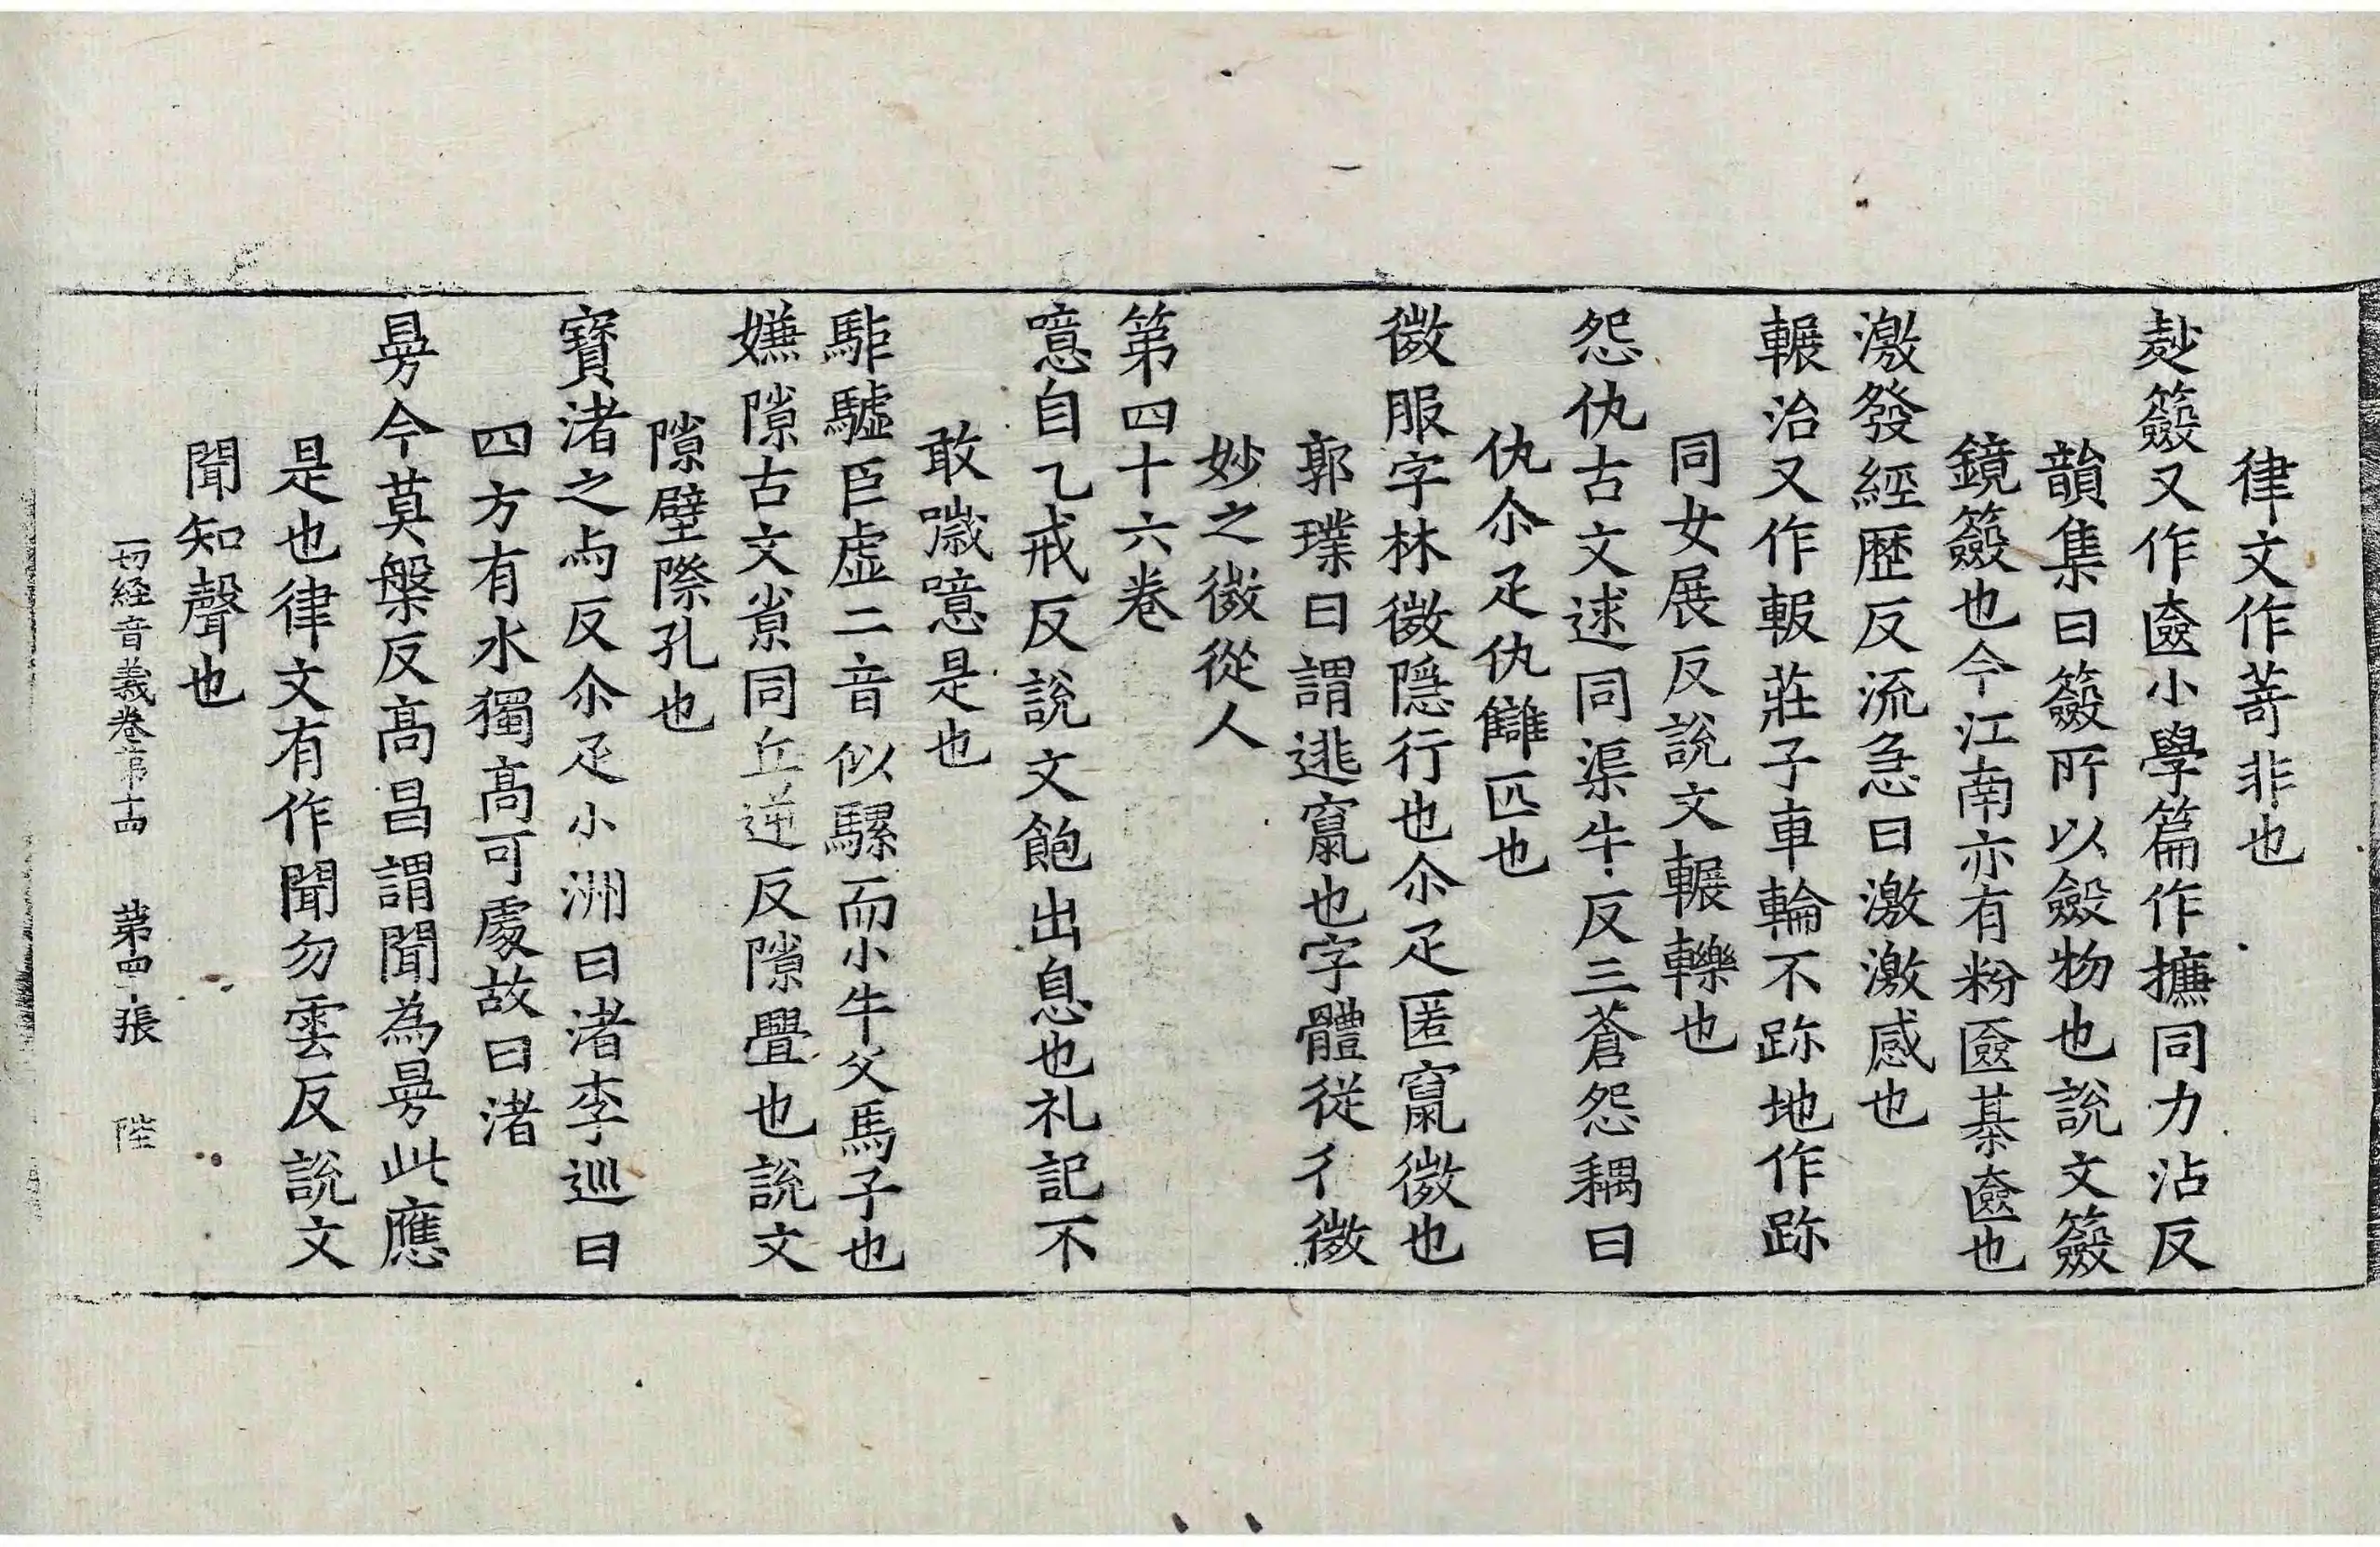 律文作荶非也
麨籢又作匳小學篇作㩘同力沾反
韻集曰籢所以斂物也說文籢
鏡籢也今江南亦有粉匳棊匳也
激發經歷反流急曰激激感也
輾治又作報莊子車輪不跡地作跡
同女展反說文輾轢也
怨仇古文逑同渠牛反三蒼怨耦曰
仇尒疋仇讎匹也
微服字林微隱行也尒疋匿竄微也
郭璞曰謂逃竄也字體從彳微
妙之微從人
第四十六卷
噫自乙戒反說文飽出息也礼記不
敢噦噫是也
駏驉巨虛二音似騾而小牛父馬子也
嫌隙古文𡭴同丘逆反隙舋也說文
隙壁際孔也
寶渚之与反尒疋小洲曰渚李巡曰
四方有水獨高可處故曰渚
㫄今莫槃反高昌謂聞為㫄此應
是也律文有作聞勿雲反說文
聞知聲也
一切経音義卷苐十四 苐四張 陸